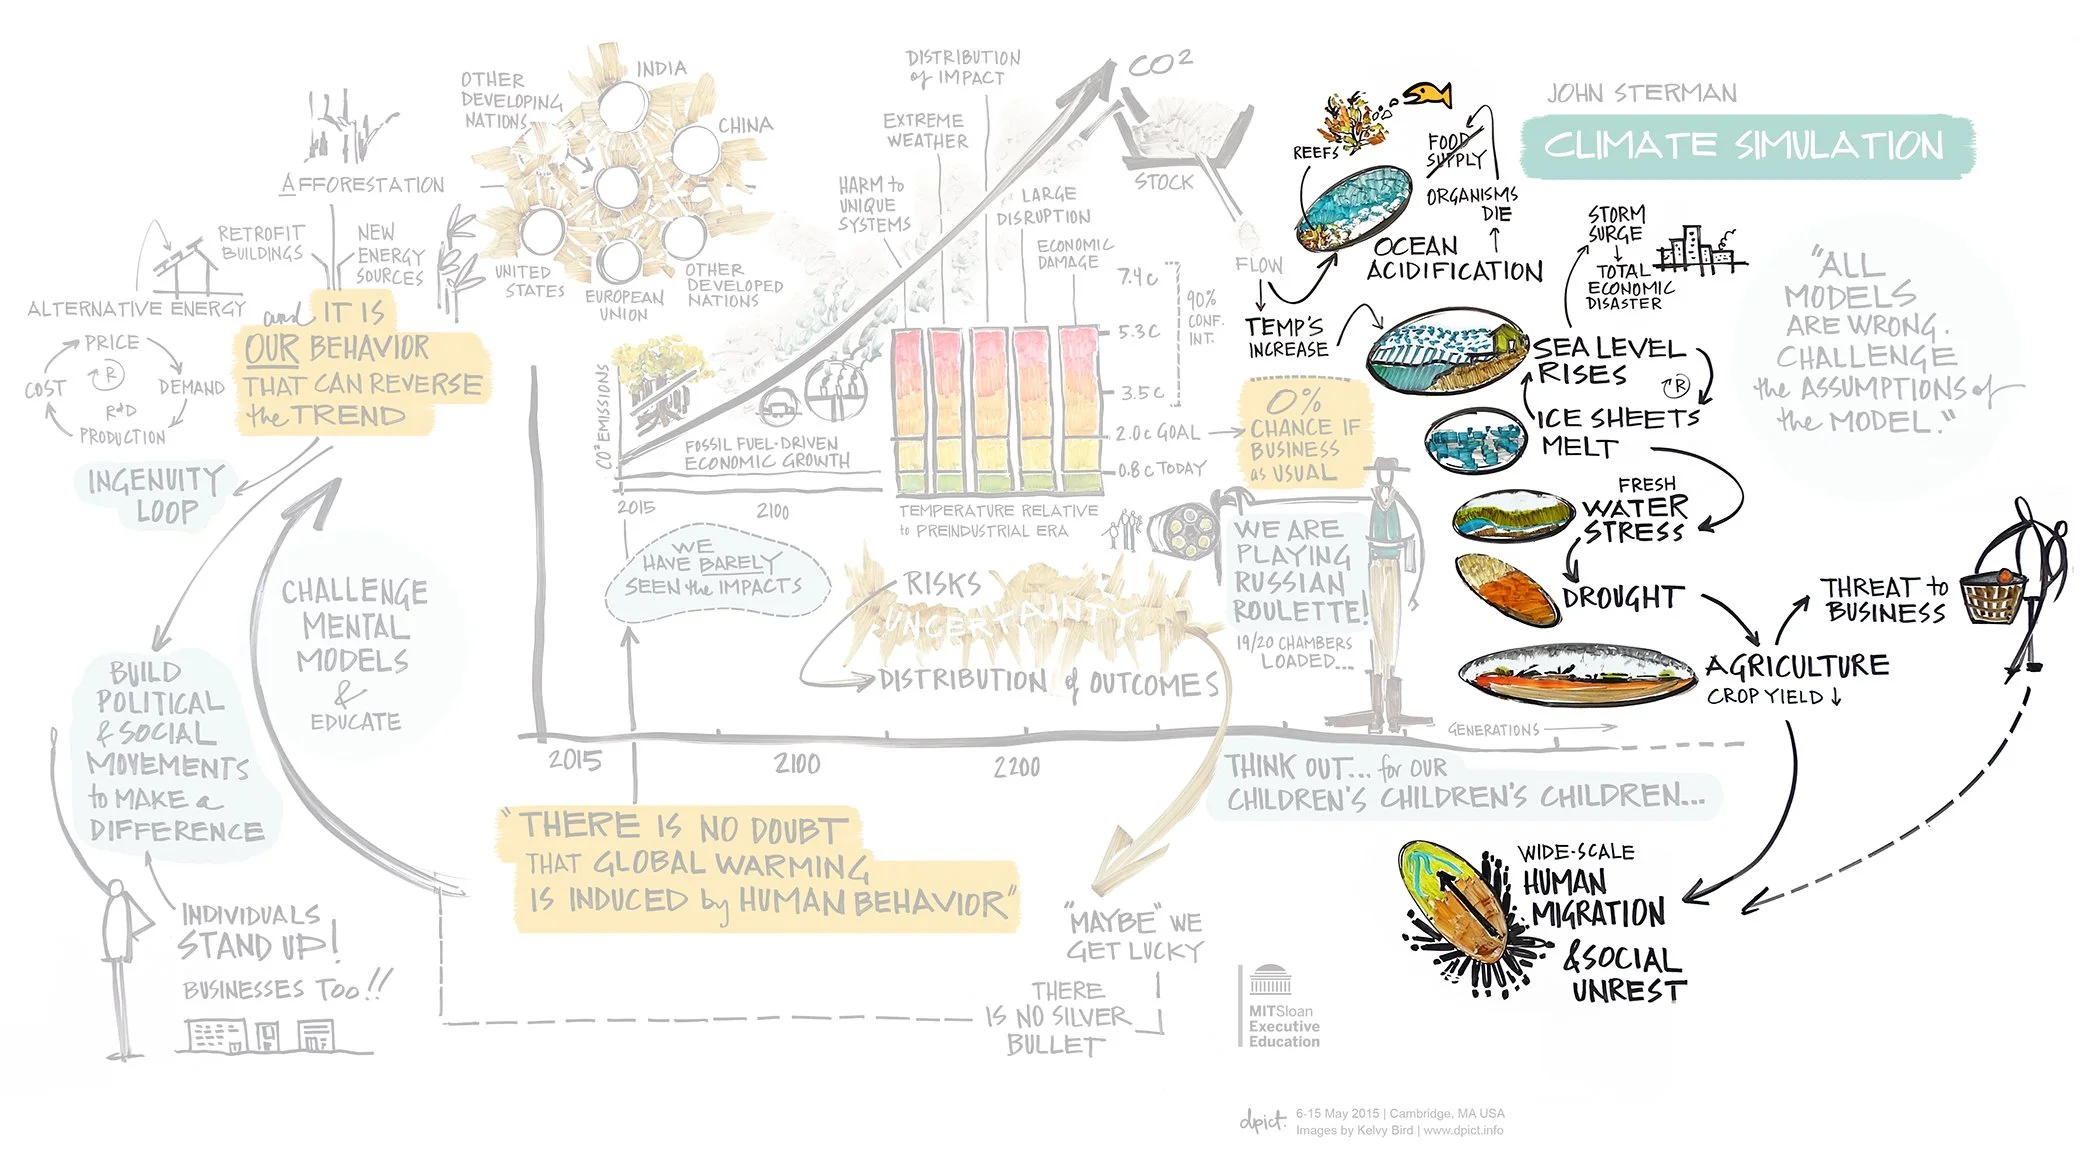 JOHN STERMAN
CLIMATE SIMULATION
"ALL
MODELS
ARE WRONG.
CHALLENGE
the ASSUMPTIONS of
the MODEL."
AFFORESTATION
RETROFIT
BUILDINGS
NEW
ENERGY
SOURCES
ALTERNATIVE ENERGY
PRICE
DEMAND
R&D
PRODUCTION
COST
R
and IT IS
OUR BEHAVIOR
THAT CAN REVERSE
the TREND
INGENUITY
LOOP
CHALLENGE
MENTAL
MODELS
&
EDUCATE
BUILD
POLITICAL
& SOCIAL
MOVEMENTS
to MAKE a
DIFFERENCE
INDIVIDUALS
STAND UP!
BUSINESSES TOO!!
OTHER
DEVELOPING
NATIONS
INDIA
CHINA
UNITED
STATES
EUROPEAN
UNION
OTHER
DEVELOPED
NATIONS
CO² EMISSIONS
FOSSIL FUEL-DRIVEN
ECONOMIC GROWTH
2015
2100
CO²
STOCK
FLOW
DISTRIBUTION
of IMPACT
EXTREME
WEATHER
HARM to
UNIQUE
SYSTEMS
LARGE
DISRUPTION
ECONOMIC
DAMAGE
7.4 C
5.3 C
3.5 C
2.0 C GOAL
0.8 C TODAY
90%
CONF.
INT.
TEMPERATURE RELATIVE
to PREINDUSTRIAL ERA
0%
CHANCE IF
BUSINESS
as USUAL
WE
HAVE BARELY
SEEN the IMPACTS
RISKS
UNCERTAINTY
DISTRIBUTION of OUTCOMES
WE ARE
PLAYING
RUSSIAN
ROULETTE!
19/20 CHAMBERS
LOADED...
GENERATIONS
2015
2100
2200
THINK OUT... for OUR
CHILDREN'S CHILDREN'S CHILDREN...
"THERE IS NO DOUBT
THAT GLOBAL WARMING
IS INDUCED by HUMAN BEHAVIOR"
"MAYBE" WE
GET LUCKY
THERE
IS NO SILVER
BULLET
REEFS
FOOD
SUPPLY
ORGANISMS
DIE
OCEAN
ACIDIFICATION
TEMP'S
INCREASE
STORM
SURGE
TOTAL
ECONOMIC
DISASTER
SEA LEVEL
RISES
R
ICE SHEETS
MELT
FRESH
WATER
STRESS
DROUGHT
AGRICULTURE
CROP YIELD ↓
THREAT to
BUSINESS
WIDE-SCALE
HUMAN
MIGRATION
& SOCIAL
UNREST
MITSloan
Executive
Education
dpict.
6-15 May 2015 | Cambridge, MA USA
Images by Kelvy Bird | www.dpict.info